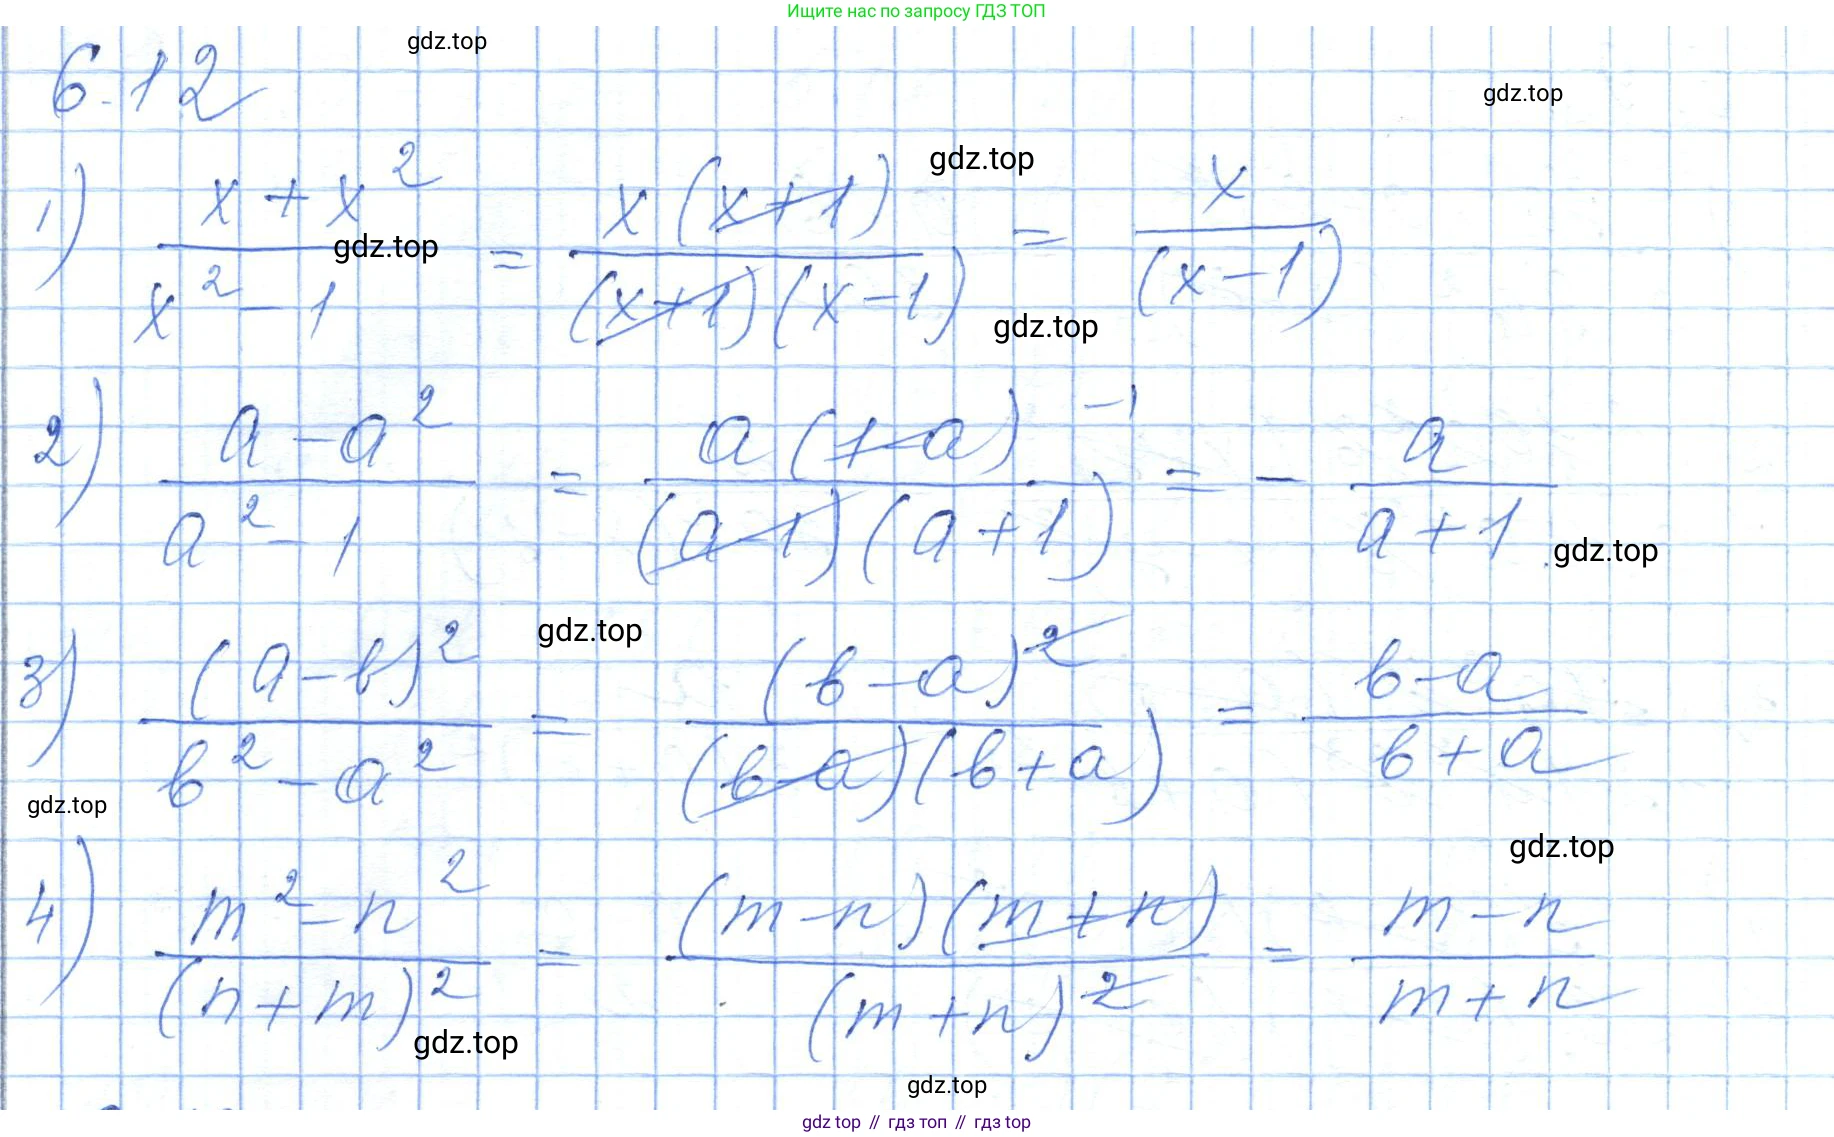 Ищите нас по запросу ГДЗ ТОП
gdz.top
6.12
gdz.top
gdz.top
1) (x + x²)/(x² - 1) = (x (x+1))/((x+1)(x-1)) = x/(x-1)
gdz.top
gdz.top
2) (a - a²)/(a² - 1) = (a (1-a)⁻¹)/((a-1)(a+1)) = - a/(a+1)
gdz.top
gdz.top
3) (a-b)²/(b² - a²) = (b-a)²/((b-a)(b+a)) = (b-a)/(b+a)
gdz.top
gdz.top
4) (m² - n²)/(n+m)² = ((m-n)(m+n))/(m+n)² = (m-n)/(m+n)
gdz.top
gdz.top
gdz top // гдз топ // gdz top